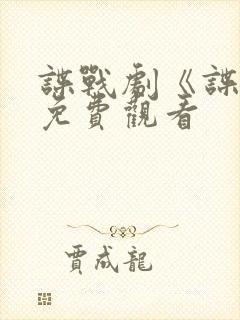 諜戰劇《諜
免費觀看
賈成龍